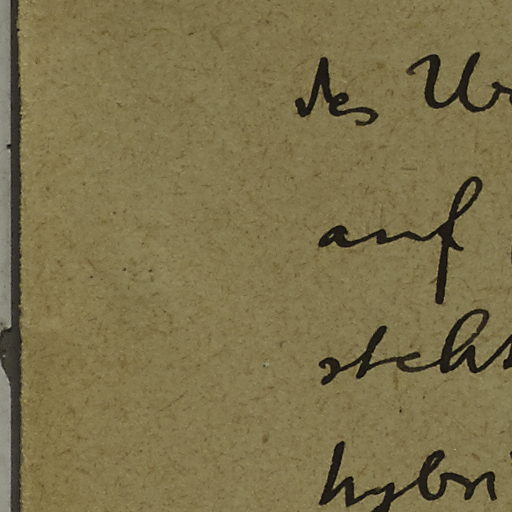 des Ur
auf
steht
hybri